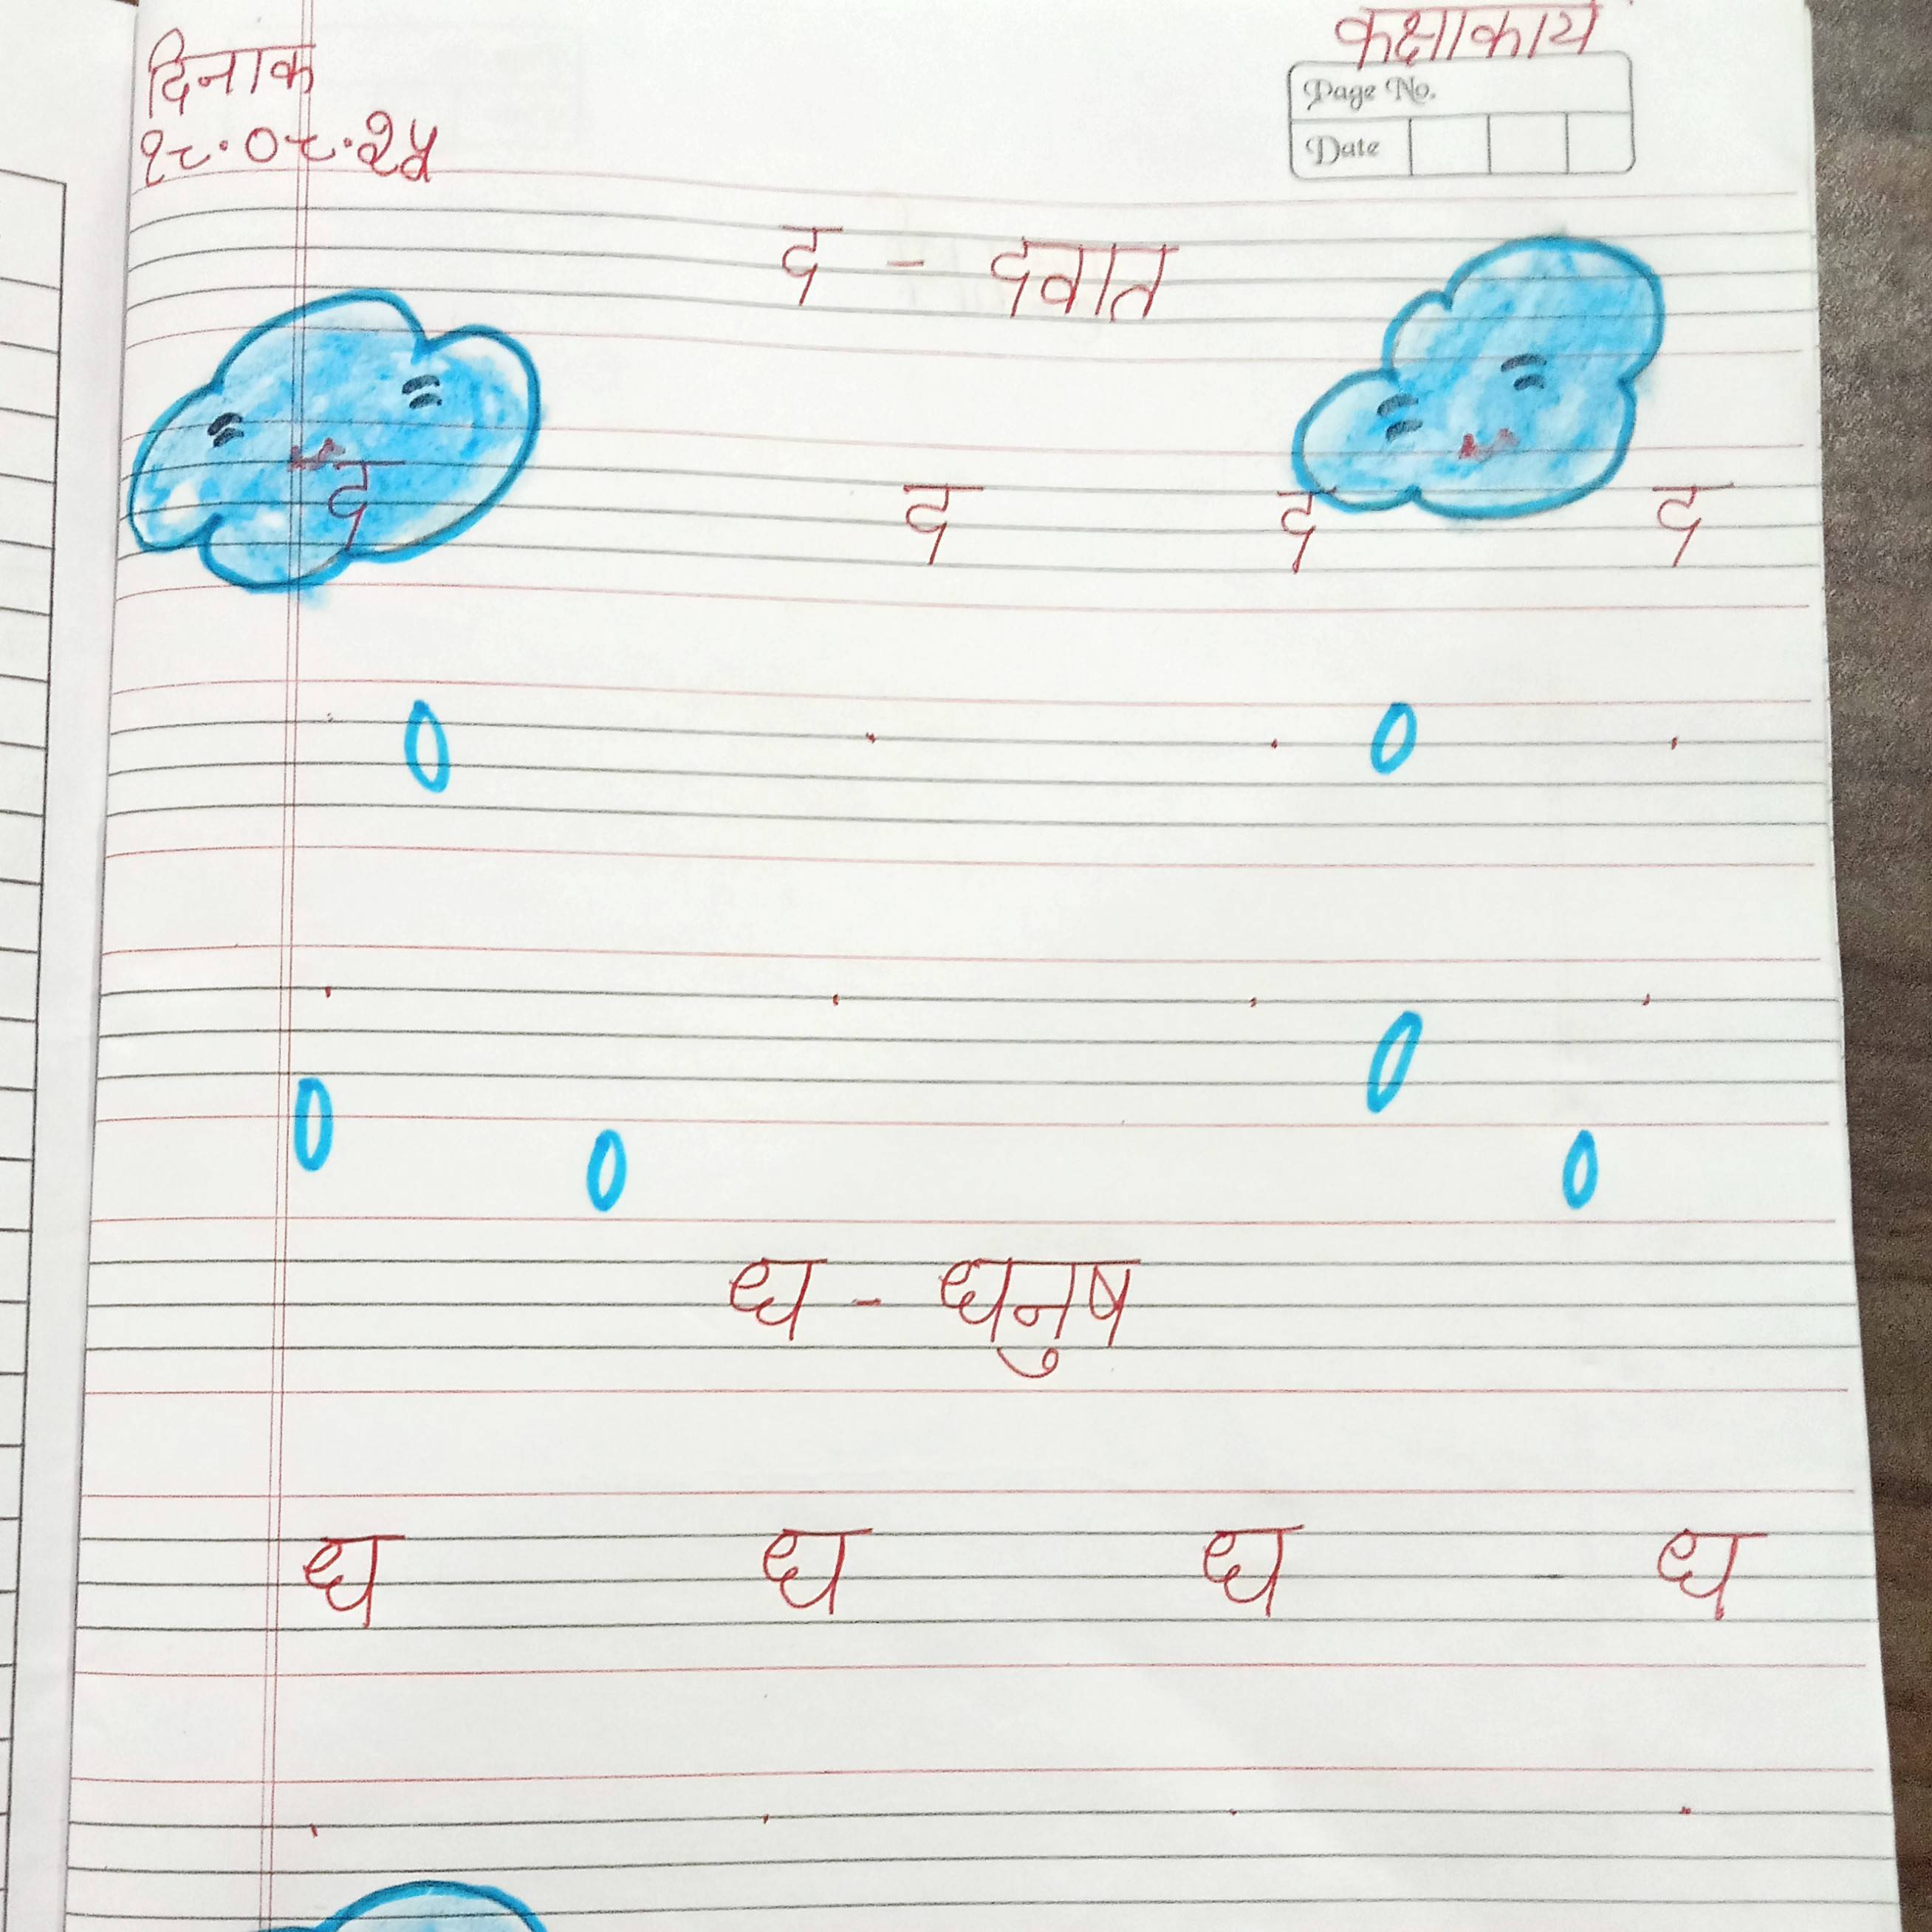 दिनाक
कक्षाकार्य
१८.०८.२५
Page No.
Date
द - दवात
द द द द
ध - धनुष
ध ध ध ध